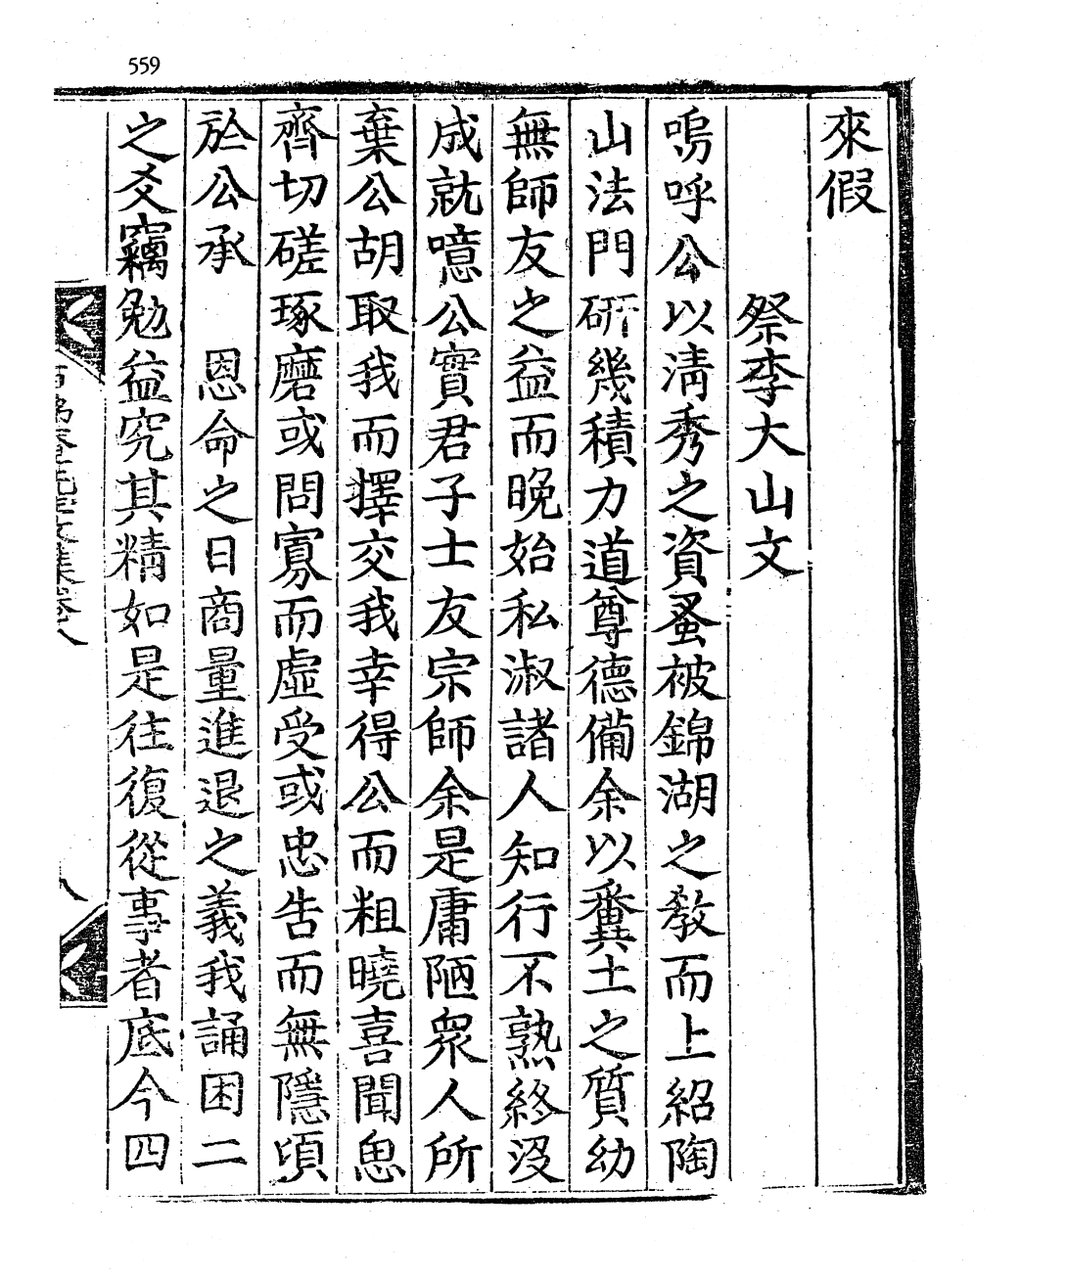 559
來假
祭李大山文
嗚呼公以淸秀之資蚤被錦湖之敎而上紹陶
山法門硏幾積力道尊德備余以糞土之質幼
無師友之益而晚始私淑諸人知行不熟終沒
成就噫公實君子士友宗師余是庸陋衆人所
棄公胡取我而擇交我幸得公而粗曉喜聞思
齊切磋琢磨或問寡而虛受或忠告而無隱頃
於公承 恩命之日商量進退之義我誦困二
之爻竊勉益究其精如是往復從事者底今四